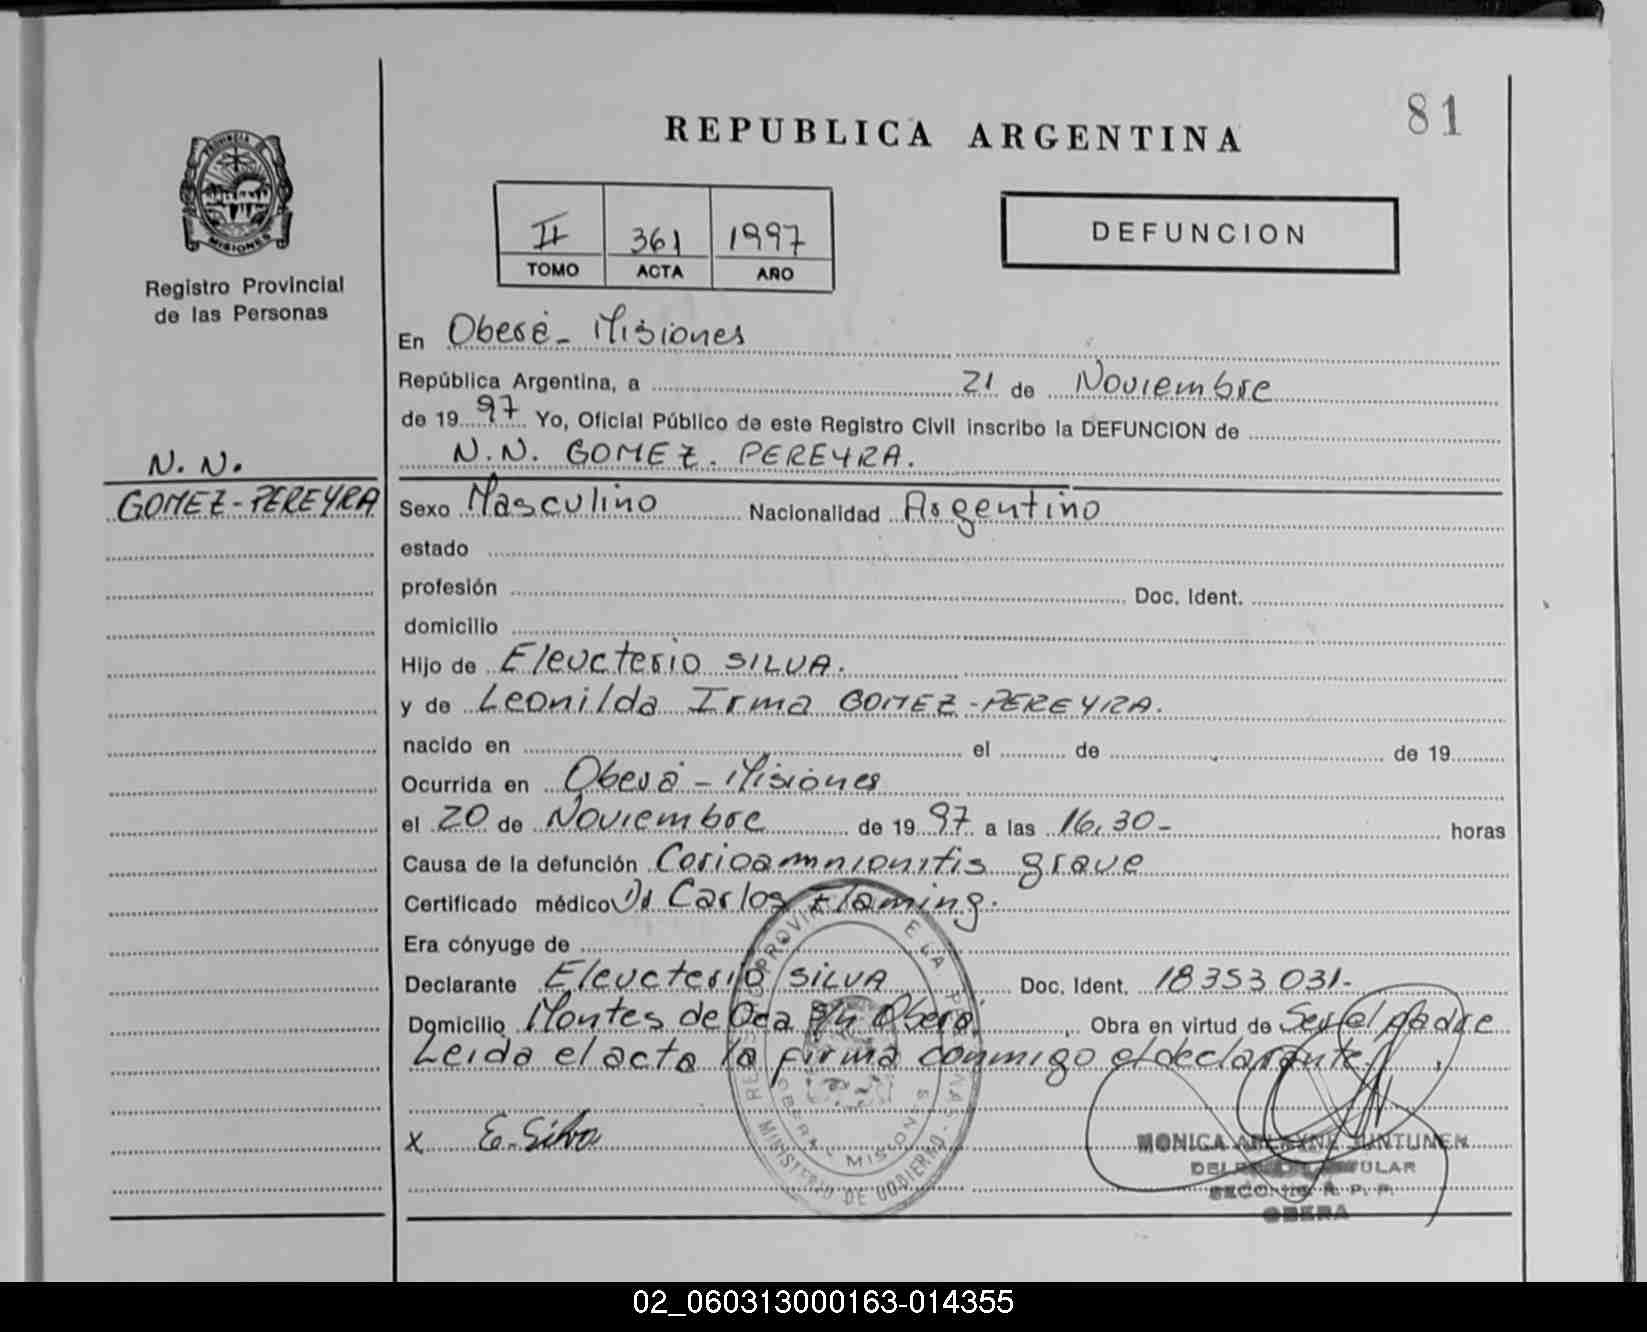 81
REPUBLICA ARGENTINA
PROVINCIA DE
MISIONES
Registro Provincial
de las Personas
II 361 1997
TOMO ACTA AÑO
DEFUNCION
En Oberá - Misiones
República Argentina, a 21 de Noviembre
de 19 97 Yo, Oficial Público de este Registro Civil inscribo la DEFUNCION de
N.N. GOMEZ. PEREYRA.
N. N.
GOMEZ-PEREYRA
Sexo Masculino Nacionalidad Argentino
estado
profesión Doc. Ident.
domicilio
Hijo de Eleucterio SILVA.
y de Leonilda Irma GOMEZ-PEREYRA.
nacido en el de de 19
Ocurrida en Oberá - Misiones
el 20 de Noviembre de 19 97 a las 16,30- horas
Causa de la defunción Corioamnionitis grave
Certificado médico Dr Carlos Flaming.
Era cónyuge de
Declarante Eleucterio SILVA Doc. Ident. 18353031-
Domicilio Montes de Oca S/N Oberá. Obra en virtud de Ser el padre
Leida el acta la firma conmigo el declarante.
x E. Silva
MINISTERIO DE GOBIERNO -
OBERA - MISIONES
MONICA JUNTUNEN
TITULAR
SECC. R. P. P.
OBERA
02_060313000163-014355